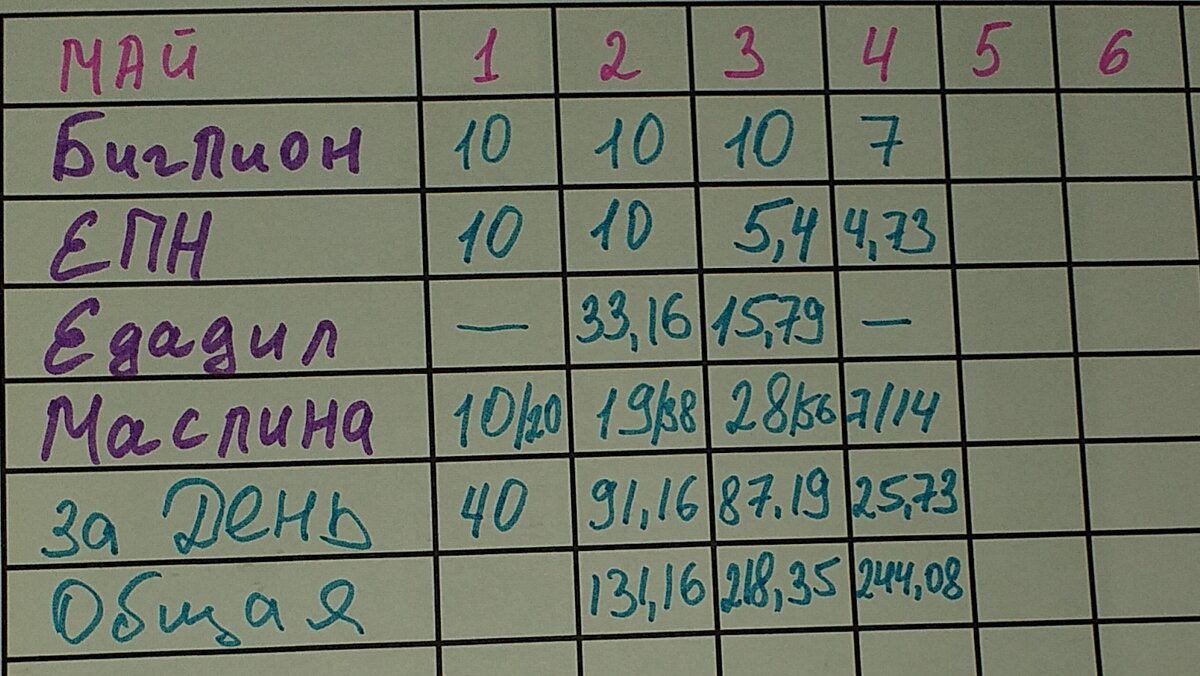 МАЙ 1 2 3 4 5 6
Биглион 10 10 10 7
ЕПН 10 10 5,4 4,73
Едадил — 33,16 15,79 —
Маслина 10/20 19/38 28/56 7/14
за День 40 91,16 87.19 25,73
Общая 131,16 218,35 244,08